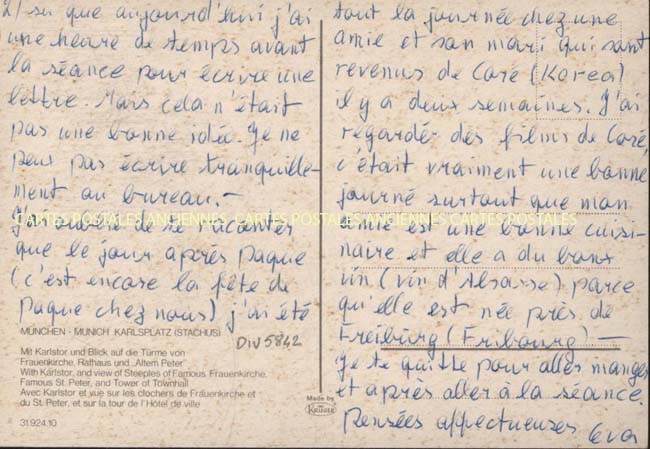 2) su que aujourd'hui j'ai
une heure de temps avant
la séance pour écrire une
lettre. Mais cela n'était
pas une bonne idée. Je ne
peux pas écrire tranquille-
ment au bureau.-
J'ai oublié de te raconter
que le jour après Paque
(c'est encore la fête de
Paque chez nous) j'ai été
MÜNCHEN - MUNICH KARLSPLATZ (STACHUS)
DIV5842
Mit Karlstor und Blick auf die Türme von
Frauenkirche, Rathaus und „Altem Peter"
With Karlstor, and view of Steeples of Famous Frauenkirche,
Famous St. Peter, and Tower of Townhall
Avec Karlstor et vue sur les clochers de Frauenkirche et
du St. Peter, et sur la tour de l'Hôtel de ville
31.924.10
Made by
KRÜGER
tout la journée chez une
amie et son mari qui sont
revenus de Coré (Korea)
il y a deux semaines. J'ai
regardér des films de Coré,
c'était vraiment une bonne
journé surtout que mon
amie est une bonne cuisi-
naire et elle a du bons
vin (vin d'Alsasse) parce
qu'elle est née près de
Freiburg (Fribourg) —
Je te quitte pour aller manger
et après aller à la séance.
Pensées affectueuses Eva
CARTES POSTALES ANCIENNES CARTES POSTALES ANCIENNES CARTES POSTALES